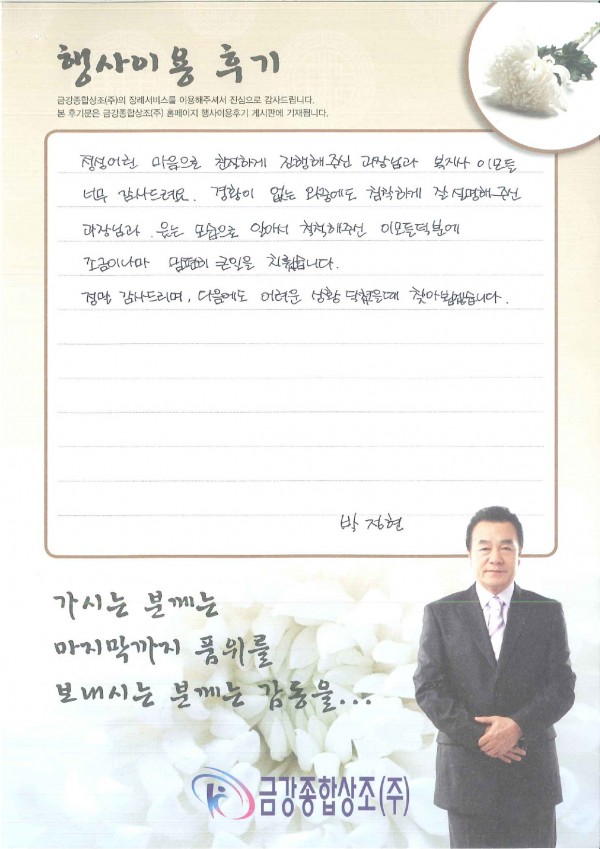 행사이용 후기
금강종합상조(주)의 장례서비스를 이용해주셔서 진심으로 감사드립니다.
본 후기문은 금강종합상조(주) 홈페이지 행사이용후기 게시판에 기재됩니다.
정성어린 마음으로 친절하게 진행해주신 과장님과 복지사 이모들
너무 감사드려요. 경황이 없는 와중에도 침착하게 잘 설명해주신
과장님과 웃는 모습으로 알아서 척척해주신 이모들덕분에
조금이나마 맘편히 큰일을 치뤘습니다.
정말 감사드리며, 다음에도 어려운 상황 닥쳤을때 찾아뵙겠습니다.
박정현
가시는 분께는
마지막까지 품위를
보내시는 분께는 감동을...
금강종합상조(주)